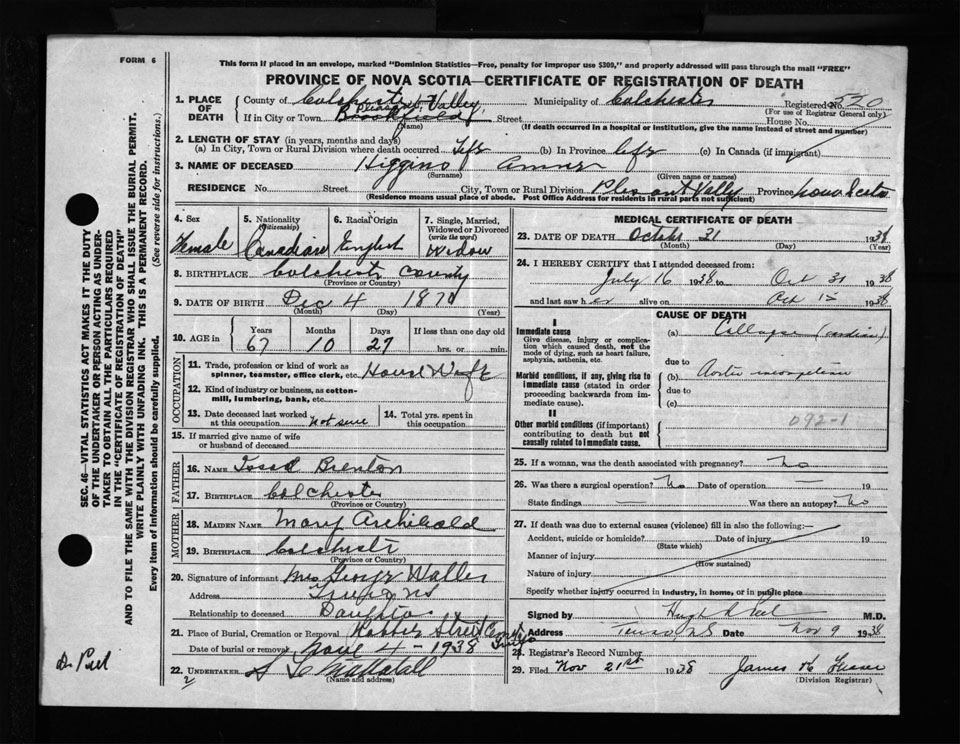 FORM 6
This form if placed in an envelope, marked "Dominion Statistics—Free, penalty for improper use $300," and properly addressed will pass through the mail "FREE"
PROVINCE OF NOVA SCOTIA—CERTIFICATE OF REGISTRATION OF DEATH
1. PLACE OF DEATH
County of Colchester Municipality of Colchester Registered No. 520
(For use of Registrar General only)
Pleasant Valley
If in City or Town Brookfield Street House No.
(Name) (If death occurred in a hospital or institution, give the name instead of street and number)
2. LENGTH OF STAY (in years, months and days)
(a) In City, Town or Rural Division where death occurred life (b) In Province life (c) In Canada (if immigrant)
3. NAME OF DECEASED Higgins
(Surname) (Given name or names)
RESIDENCE No. Street City, Town or Rural Division Plesant Vally Province Nova Scotia
(Residence means usual place of abode. Post Office Address for residents in rural parts not sufficient)
4. Sex
Female
5. Nationality
(Citizenship)
Canadian
6. Racial Origin
English
7. Single, Married, Widowed or Divorced
(write the word)
Widow
8. BIRTHPLACE Colchester County
(Province or Country)
9. DATE OF BIRTH Dec 4 1870
(Month) (Day) (Year)
10. AGE in
Years Months Days If less than one day old
67 10 27 hrs. or min.
OCCUPATION
11. Trade, profession or kind of work as spinner, teamster, office clerk, etc. House Wife
12. Kind of industry or business, as cotton-mill, lumbering, bank, etc.
13. Date deceased last worked at this occupation not sure
14. Total yrs. spent in this occupation
15. If married give name of wife or husband of deceased
FATHER
16. NAME Brenton
17. BIRTHPLACE Colchester
(Province or Country)
MOTHER
18. MAIDEN NAME Mary Archibald
19. BIRTHPLACE Colchester
(Province or Country)
20. Signature of informant Mrs George Waller
Address Truro NS
Relationship to deceased Daughter
21. Place of Burial, Cremation or Removal
Date of burial or removal Nov 4 - 1938
22. UNDERTAKER
(Name and address)
2
MEDICAL CERTIFICATE OF DEATH
23. DATE OF DEATH October 31 1938
(Month) (Day) (Year)
24. I HEREBY CERTIFY that I attended deceased from:
July 16 1938 to Oct 31 1938
and last saw her alive on Oct 15 1938
CAUSE OF DEATH
I
Immediate cause
Give disease, injury or complication which caused death, not the mode of dying, such as heart failure, asphyxia, asthenia, etc.
(a) Collapse (cardiac)
due to
Morbid conditions, if any, giving rise to immediate cause (stated in order proceeding backwards from immediate cause).
(b) Aortic incompetence
due to
(c)
II
Other morbid conditions (if important) contributing to death but not causally related to immediate cause.
092-1
25. If a woman, was the death associated with pregnancy? No
26. Was there a surgical operation? No Date of operation — 19
State findings — Was there an autopsy? No
27. If death was due to external causes (violence) fill in also the following:—
Accident, suicide or homicide? Date of injury 19
(State which)
Manner of injury
(How sustained)
Nature of injury
Specify whether injury occurred in industry, in home, or in public place
Signed by M.D.
Address Truro NS Date Nov 9 1938
28. Registrar's Record Number
29. Filed Nov 21st 1938 James
(Division Registrar)
SEC. 46—VITAL STATISTICS ACT MAKES IT THE DUTY
OF THE UNDERTAKER OR PERSON ACTING AS UNDER-
TAKER TO OBTAIN ALL THE PARTICULARS REQUIRED
IN THE "CERTIFICATE OF REGISTRATION OF DEATH"
AND TO FILE THE SAME WITH THE DIVISION REGISTRAR WHO SHALL ISSUE THE BURIAL PERMIT.
WRITE PLAINLY WITH UNFADING INK. THIS IS A PERMANENT RECORD.
Every item of information should be carefully supplied. (See reverse side for instructions).